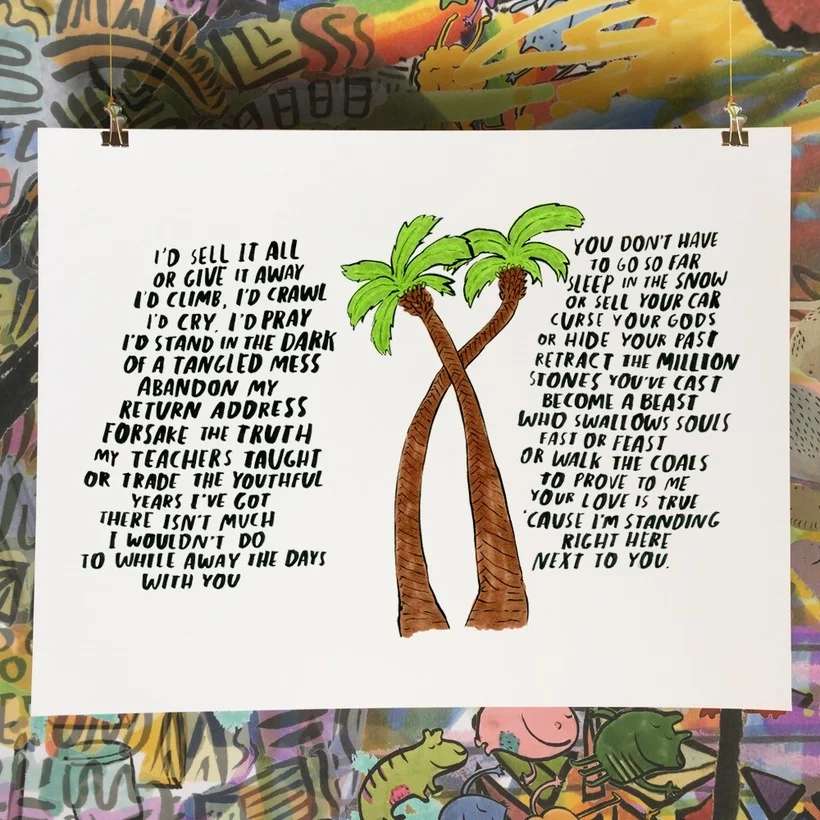 I'D SELL IT ALL
OR GIVE IT AWAY
I'D CLIMB, I'D CRAWL
I'D CRY, I'D PRAY
I'D STAND IN THE DARK
OF A TANGLED MESS
ABANDON MY
RETURN ADDRESS
FORSAKE THE TRUTH
MY TEACHERS TAUGHT
OR TRADE THE YOUTHFUL
YEARS I'VE GOT
THERE ISN'T MUCH
I WOULDN'T DO
TO WHILE AWAY THE DAYS
WITH YOU
YOU DON'T HAVE
TO GO SO FAR
SLEEP IN THE SNOW
OR SELL YOUR CAR
CURSE YOUR GODS
OR HIDE YOUR PAST
RETRACT THE MILLION
STONES YOU'VE CAST
BECOME A BEAST
WHO SWALLOWS SOULS
FAST OR FEAST
OR WALK THE COALS
TO PROVE TO ME
YOUR LOVE IS TRUE
'CAUSE I'M STANDING
RIGHT HERE
NEXT TO YOU.